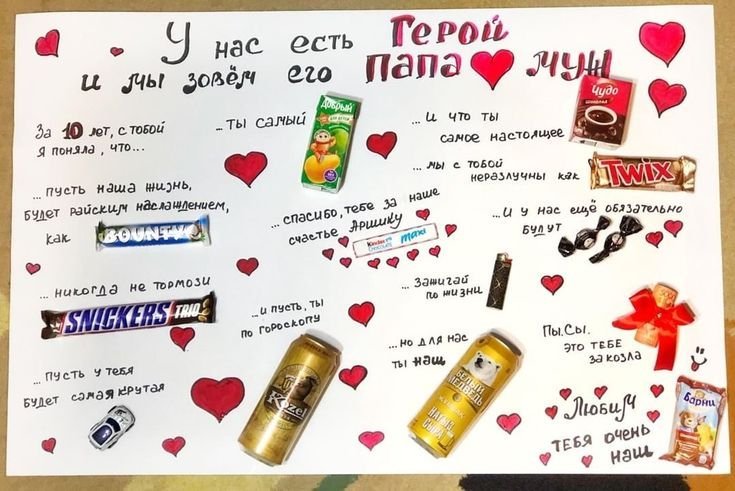 У нас есть Герой
и мы зовём его Папа муж
За 10 лет, с тобой
я поняла, что...
...ты самый
Добрый
...и что ты
самое настоящее
Чудо
шоколад
...мы с тобой
неразлучны как
TWIX
...пусть наша жизнь,
будет райским наслажлением,
как
BOUNTY
...спасибо, тебе за наше
счастье Аришику
Kinder
CHOCOLATE
maxi
...и у нас ещё обязательно
будут
...никогда не тормози
SNICKERS TRIO
...и пусть, ты
по гороскопу
Kozel
...Зажигай
по жизни
...но для нас
ты наш
БЕЛЫЙ
МЕДВЕДЬ
П.Ы.СЫ.
это тебе
за козла
...пусть у тебя
будет самая крутая
Любим
тебя очень
наш
Барни